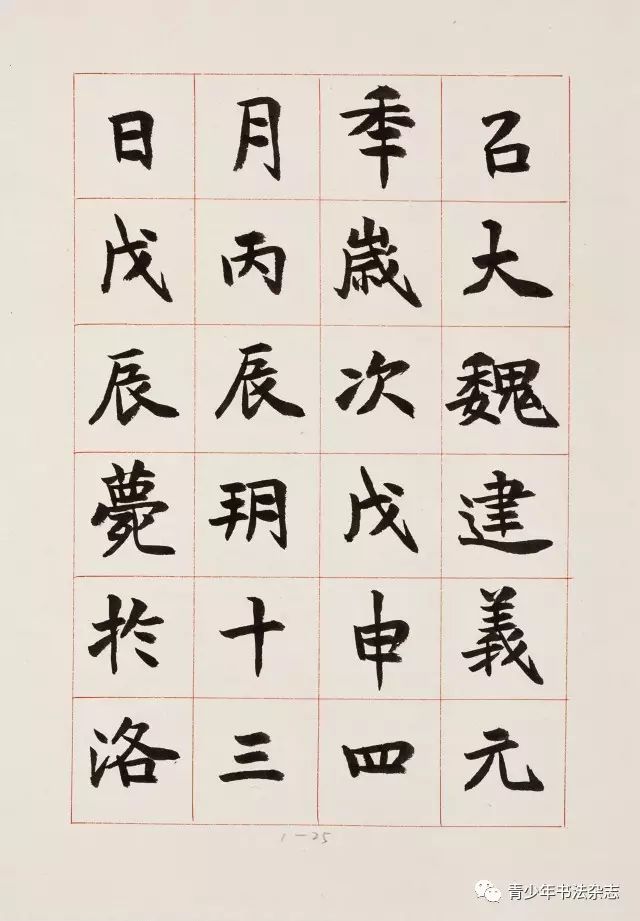 㠯大魏建義元
秊歲次戊申四
月丙辰朔十三
日戊辰薨於洛
1-25
青少年书法杂志